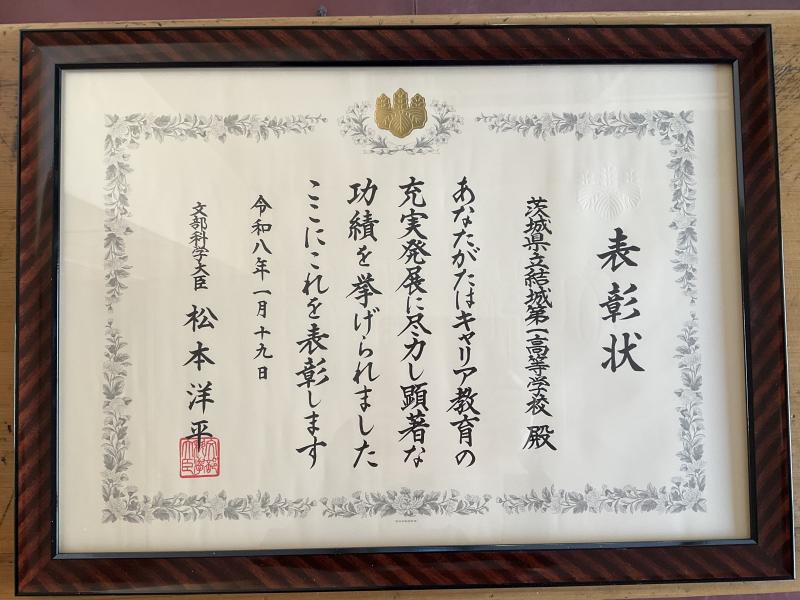 表彰状
茨城県立結城第一高等学校 殿
あなたがたはキャリア教育の
充実発展に尽力し顕著な
功績を挙げられました
ここにこれを表彰します
令和八年一月十九日
文部科学大臣 松本洋平